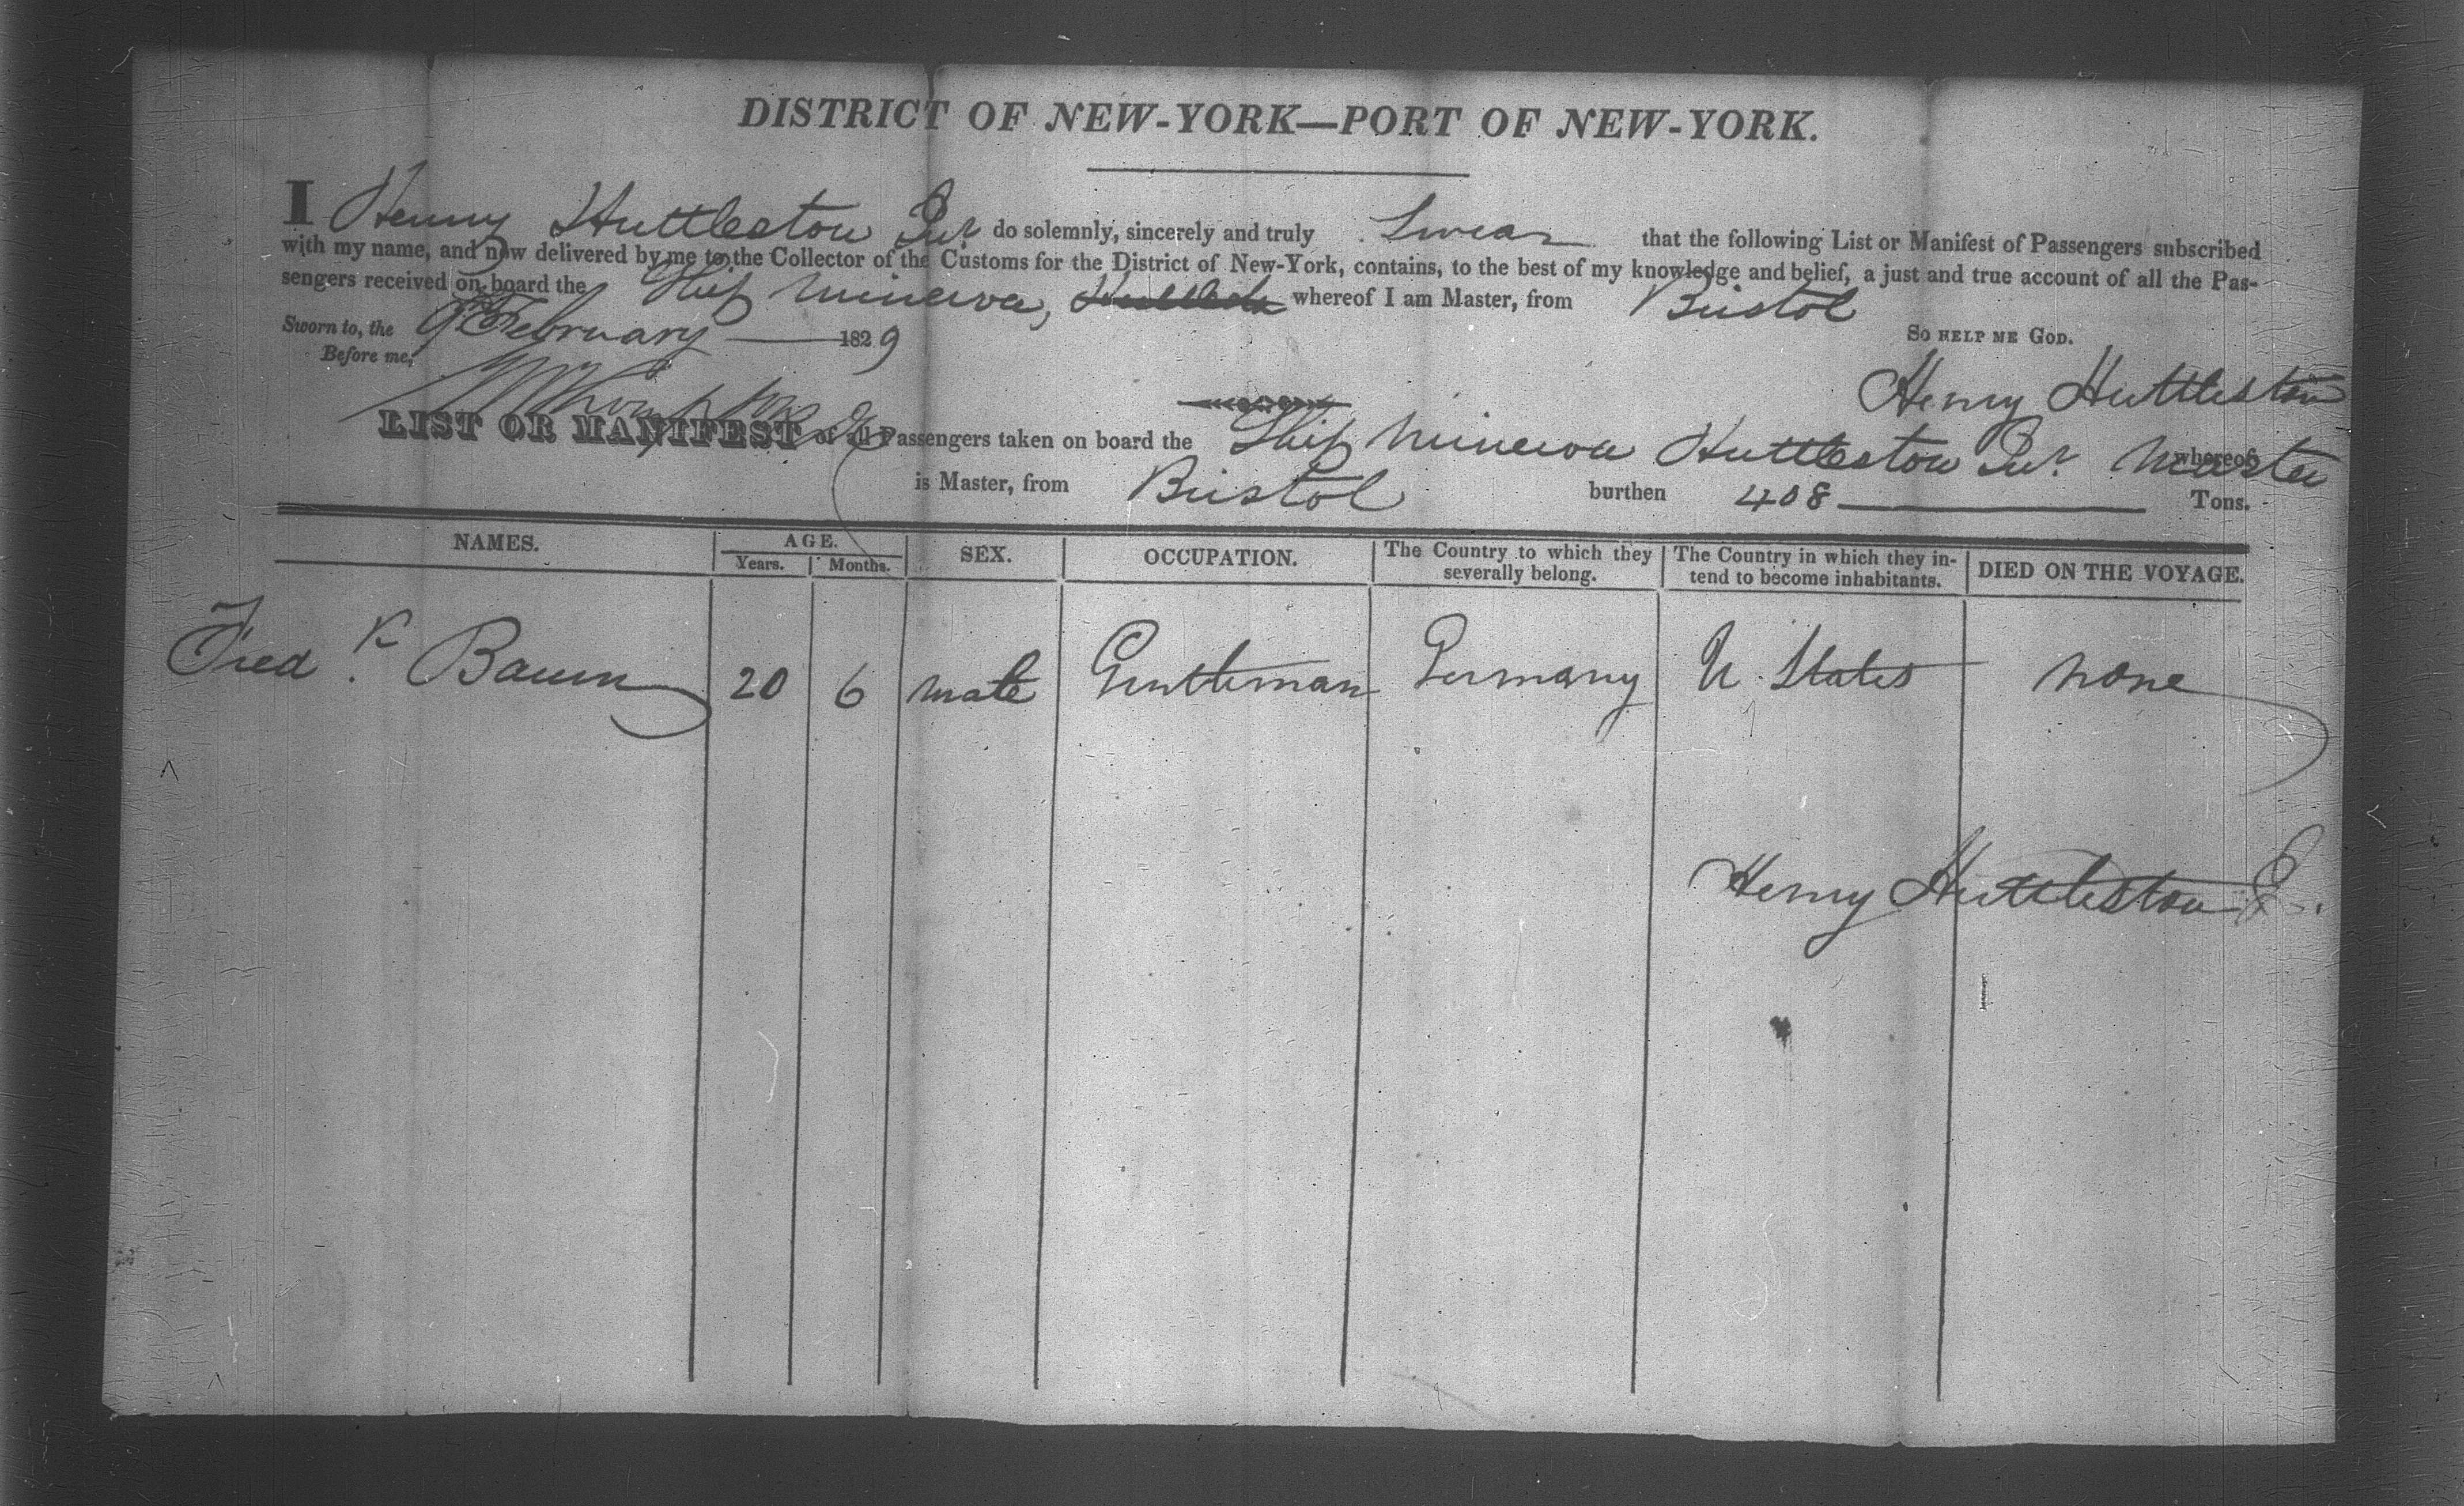 DISTRICT OF NEW-YORK—PORT OF NEW-YORK.
I Henry Huttleston Jur. do solemnly, sincerely and truly Swear that the following List or Manifest of Passengers subscribed
with my name, and now delivered by me to the Collector of the Customs for the District of New-York, contains, to the best of my knowledge and belief, a just and true account of all the Pas-
sengers received on board the Ship Minerva, whereof I am Master, from Bristol
Sworn to, the 9 February 1829 SO HELP ME GOD.
Before me,
Henry Huttleston
LIST OR MANIFEST of all Passengers taken on board the Ship Minerva Huttleston Jur. Master whereof
is Master, from Bristol burthen 408 Tons.
NAMES. AGE. SEX. OCCUPATION. The Country to which they severally belong. The Country in which they in-tend to become inhabitants. DIED ON THE VOYAGE.
Years. Months.
Fred.k Baum 20 6 male Gentleman Germany U. States none
Henry Huttleston Jr.